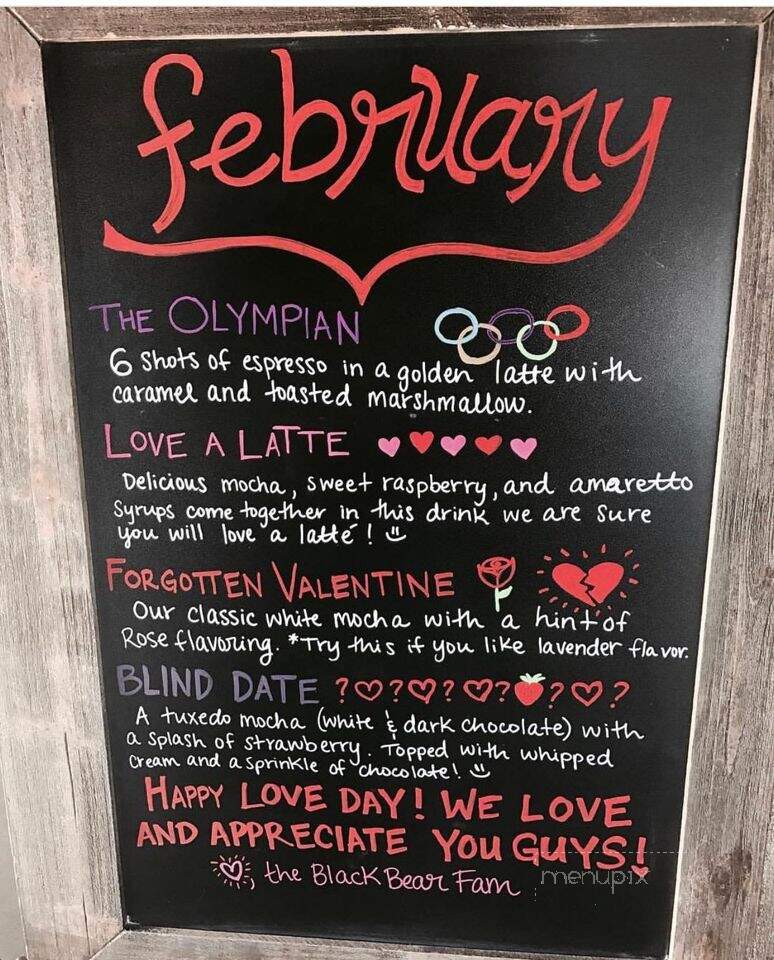 february
THE OLYMPIAN
6 shots of espresso in a golden latte with
caramel and toasted marshmallow.
LOVE A LATTE
Delicious mocha, sweet raspberry, and amaretto
Syrups come together in this drink we are sure
you will love a latté!
FORGOTTEN VALENTINE
Our classic white mocha with a hint of
Rose flavoring. *Try this if you like lavender flavor.
BLIND DATE ? ? ? ? ? ?
A tuxedo mocha (white & dark chocolate) with
a splash of strawberry. Topped with whipped
cream and a sprinkle of chocolate!
HAPPY LOVE DAY! WE LOVE
AND APPRECIATE YOU GUYS!
, the Black Bear Fam
menupix